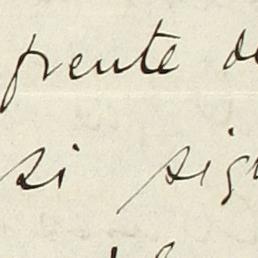 frente de
si sig